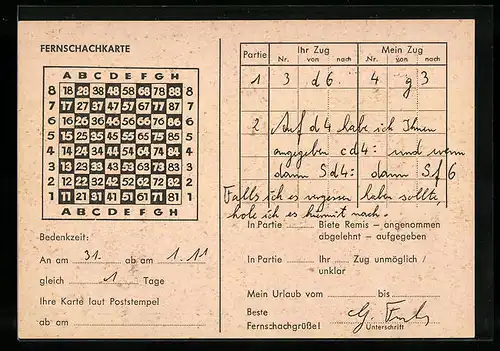 FERNSCHACHKARTE
A B C D E F G H
8 18 28 38 48 58 68 78 88 8
7 17 27 37 47 57 67 77 87 7
6 16 26 36 46 56 66 76 86 6
5 15 25 35 45 55 65 75 85 5
4 14 24 34 44 54 64 74 84 4
3 13 23 33 43 53 63 73 83 3
2 12 22 32 42 52 62 72 82 2
1 11 21 31 41 51 61 71 81 1
A B C D E F G H
Bedenkzeit:
An am 31. ab am 1.11
gleich 1 Tage
Ihre Karte laut Poststempel
ab am
Partie Ihr Zug Mein Zug
Nr. von nach Nr. von nach
1 3 d6 4 g3
2 Auf d4 habe ich Ihnen
angegeben cd4: und wenn
dann Sd4: dann Sf6
Falls ich es vergessen haben sollte,
hole ich es hiermit nach.
In Partie Biete Remis – angenommen
abgelehnt – aufgegeben
In Partie Ihr Zug unmöglich /
unklar
Mein Urlaub vom bis
Beste
Fernschachgrüße! Unterschrift